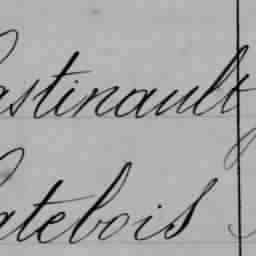 astinault
atebois